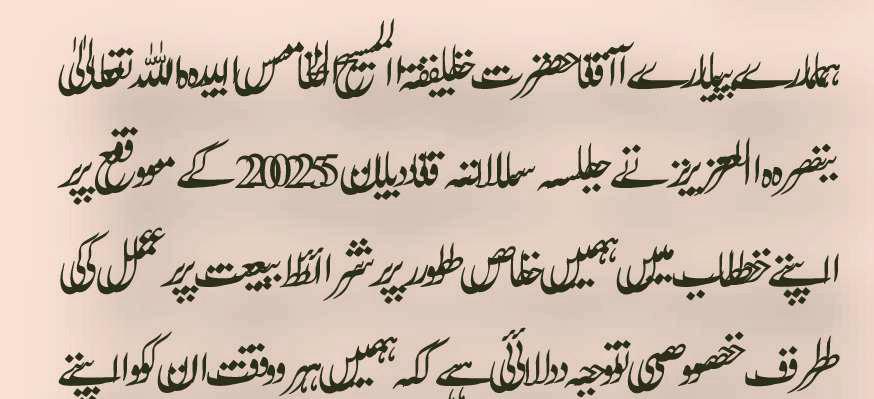 ہمارے پیارے آقا حضرت خلیفۃ المسیح الخامس ایدہ اللہ تعالیٰ
بنصرہ العزیز نے جلسہ سالانہ قادیان 2025 کے موقع پر
اپنے خطاب میں ہمیں خاص طور پر شرائط بیعت پر عمل کی
طرف خصوصی توجہ دلائی ہے کہ ہمیں ہر وقت ان کو اپنے